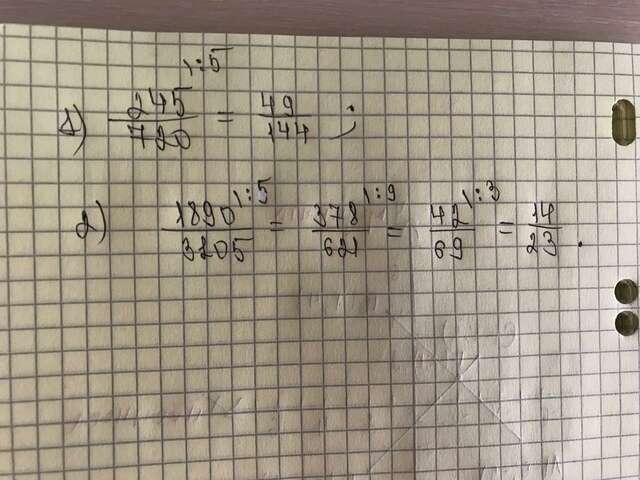 1) 245/720 |:5 = 49/144 ;
2) 1890/3105 |:5 = 378/621 |:9 = 42/69 |:3 = 14/23 .